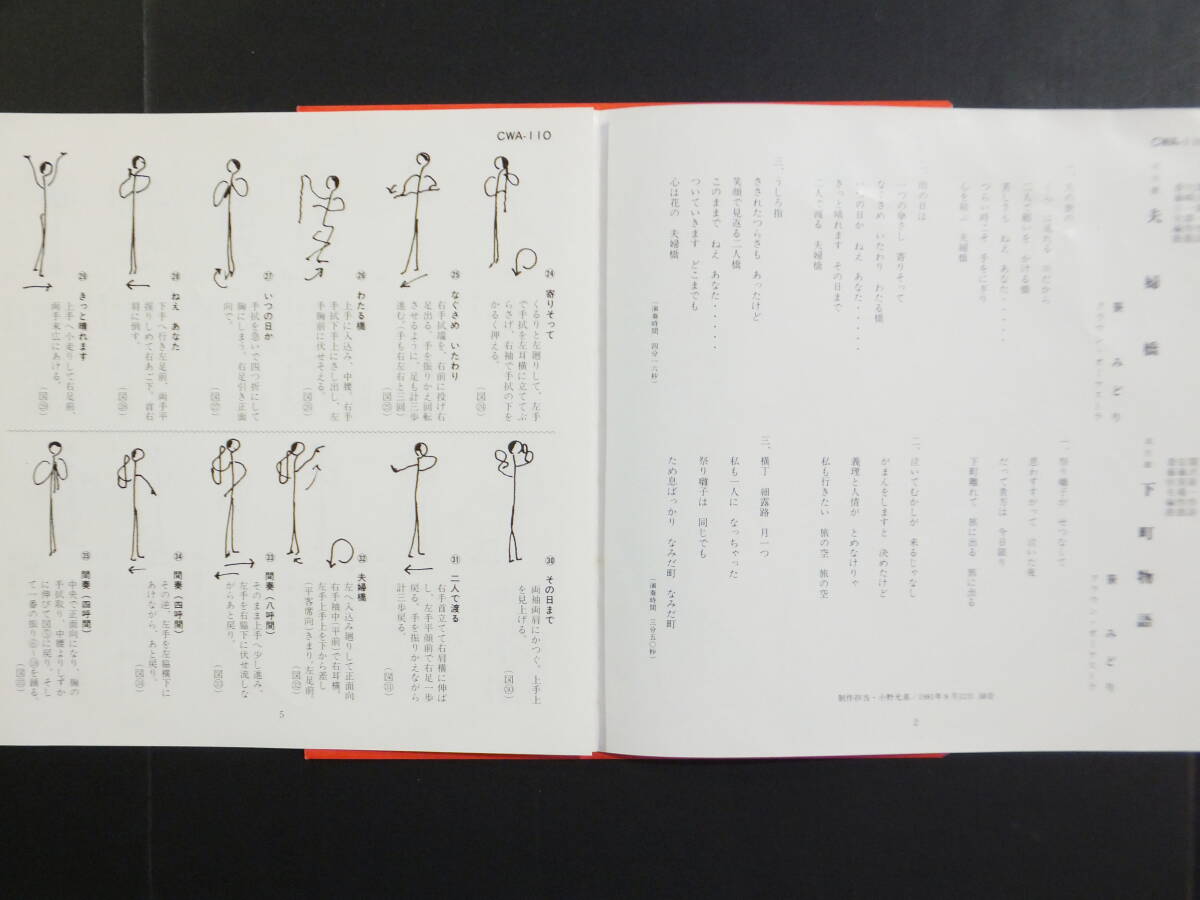 CWA-110
夫婦橋
葵みどり
二人で願いを かける橋
苦しさも ねえ あなた・・・・・
つらい時こそ 手をにぎり
心を結ぶ 夫婦橋
一つの傘さし 寄りそって
なぐさめ いたわり わたる橋
いつの日か ねえ あなた・・・・・
きっと晴れます その日まで
二人で渡る 夫婦橋
三、うしろ指
さされたつらさも あったけど
笑顔で見返る二人橋
このままで ねえ あなた・・・・・
ついていきます どこまでも
心は花の 夫婦橋
(演奏時間 四分一六秒)
下町物語
葵みどり
一、祭り囃子が せつなくて
思わずすがって 泣いた夜
だって貴方は 今日限り
下町離れて 旅に出る 旅に出る
二、泣いてむかしが 来るじゃなし
がまんをしますと 決めたけど
義理と人情が とめなけりゃ
私も行きたい 旅の空 旅の空
三、横丁 朝露路 月一つ
私も一人に なっちゃった
祭り囃子は 同じでも
ため息ばっかり なみだ町 なみだ町
(演奏時間 三分五〇秒)
2
CWA-110
㉔ 寄りそって
くるりと左廻りして、左手
で手拭を左耳横に立ててぶ
らさげ、右袖で手拭の下を
かるく押える。
(図㉔)
㉕ なぐさめ いたわり
右手拭端を、右前に投げ右
足出る。手を振りかえ回転
させるように、足も計三歩
進む(手も右左右と三回)
(図㉕)
㉖ わたる橋
上手に入込み、中腰、右手
手拭下手上にさし出し、左
手胸前に伏せそえる。
(図㉖)
㉗ いつの日か
手拭を急いで四つ折にして
胸にしまう。右足引き正面
向で。
(図㉗)
㉘ ねえ あなた
下手へ行き左足前、両手平
握りしめて右あご下、首右
肩に倒す。
(図㉘)
㉙ きっと晴れます
上手へ小走りして右足前、
両手末広にあける。
(図㉙)
㉚ その日まで
両袖両肩にかつぐ。上手上
を見上げる。
(図㉚)
㉛ 二人で渡る
右手首立てて右肩横に伸ば
し、左手平顔前で右足一歩
戻る。手を振りかえながら
計三歩戻る。
(図㉛)
㉜ 夫婦橋
左へ入込み廻りして正面向
右手袖中(平前)で右耳横、
左手上手上を下から差し
(平客席向)きまり。左足前。
(図㉜)
㉝ 間奏(八呼間)
そのまま上手へ少し進み、
左手を右脇下に伏せ流しな
がらあと戻り。
(図㉝)
㉞ 間奏(四呼間)
その逆、左手を左脇横下に
あけながら、あと戻り。
(図㉞)
㉟ 間奏(四呼間)
中央で正面向になり、胸の
手拭取り、中腰よりしずか
に伸びて図㉟に戻り、そし
て一番の振り⑥~⑲を踊る。
(図㉟)
5